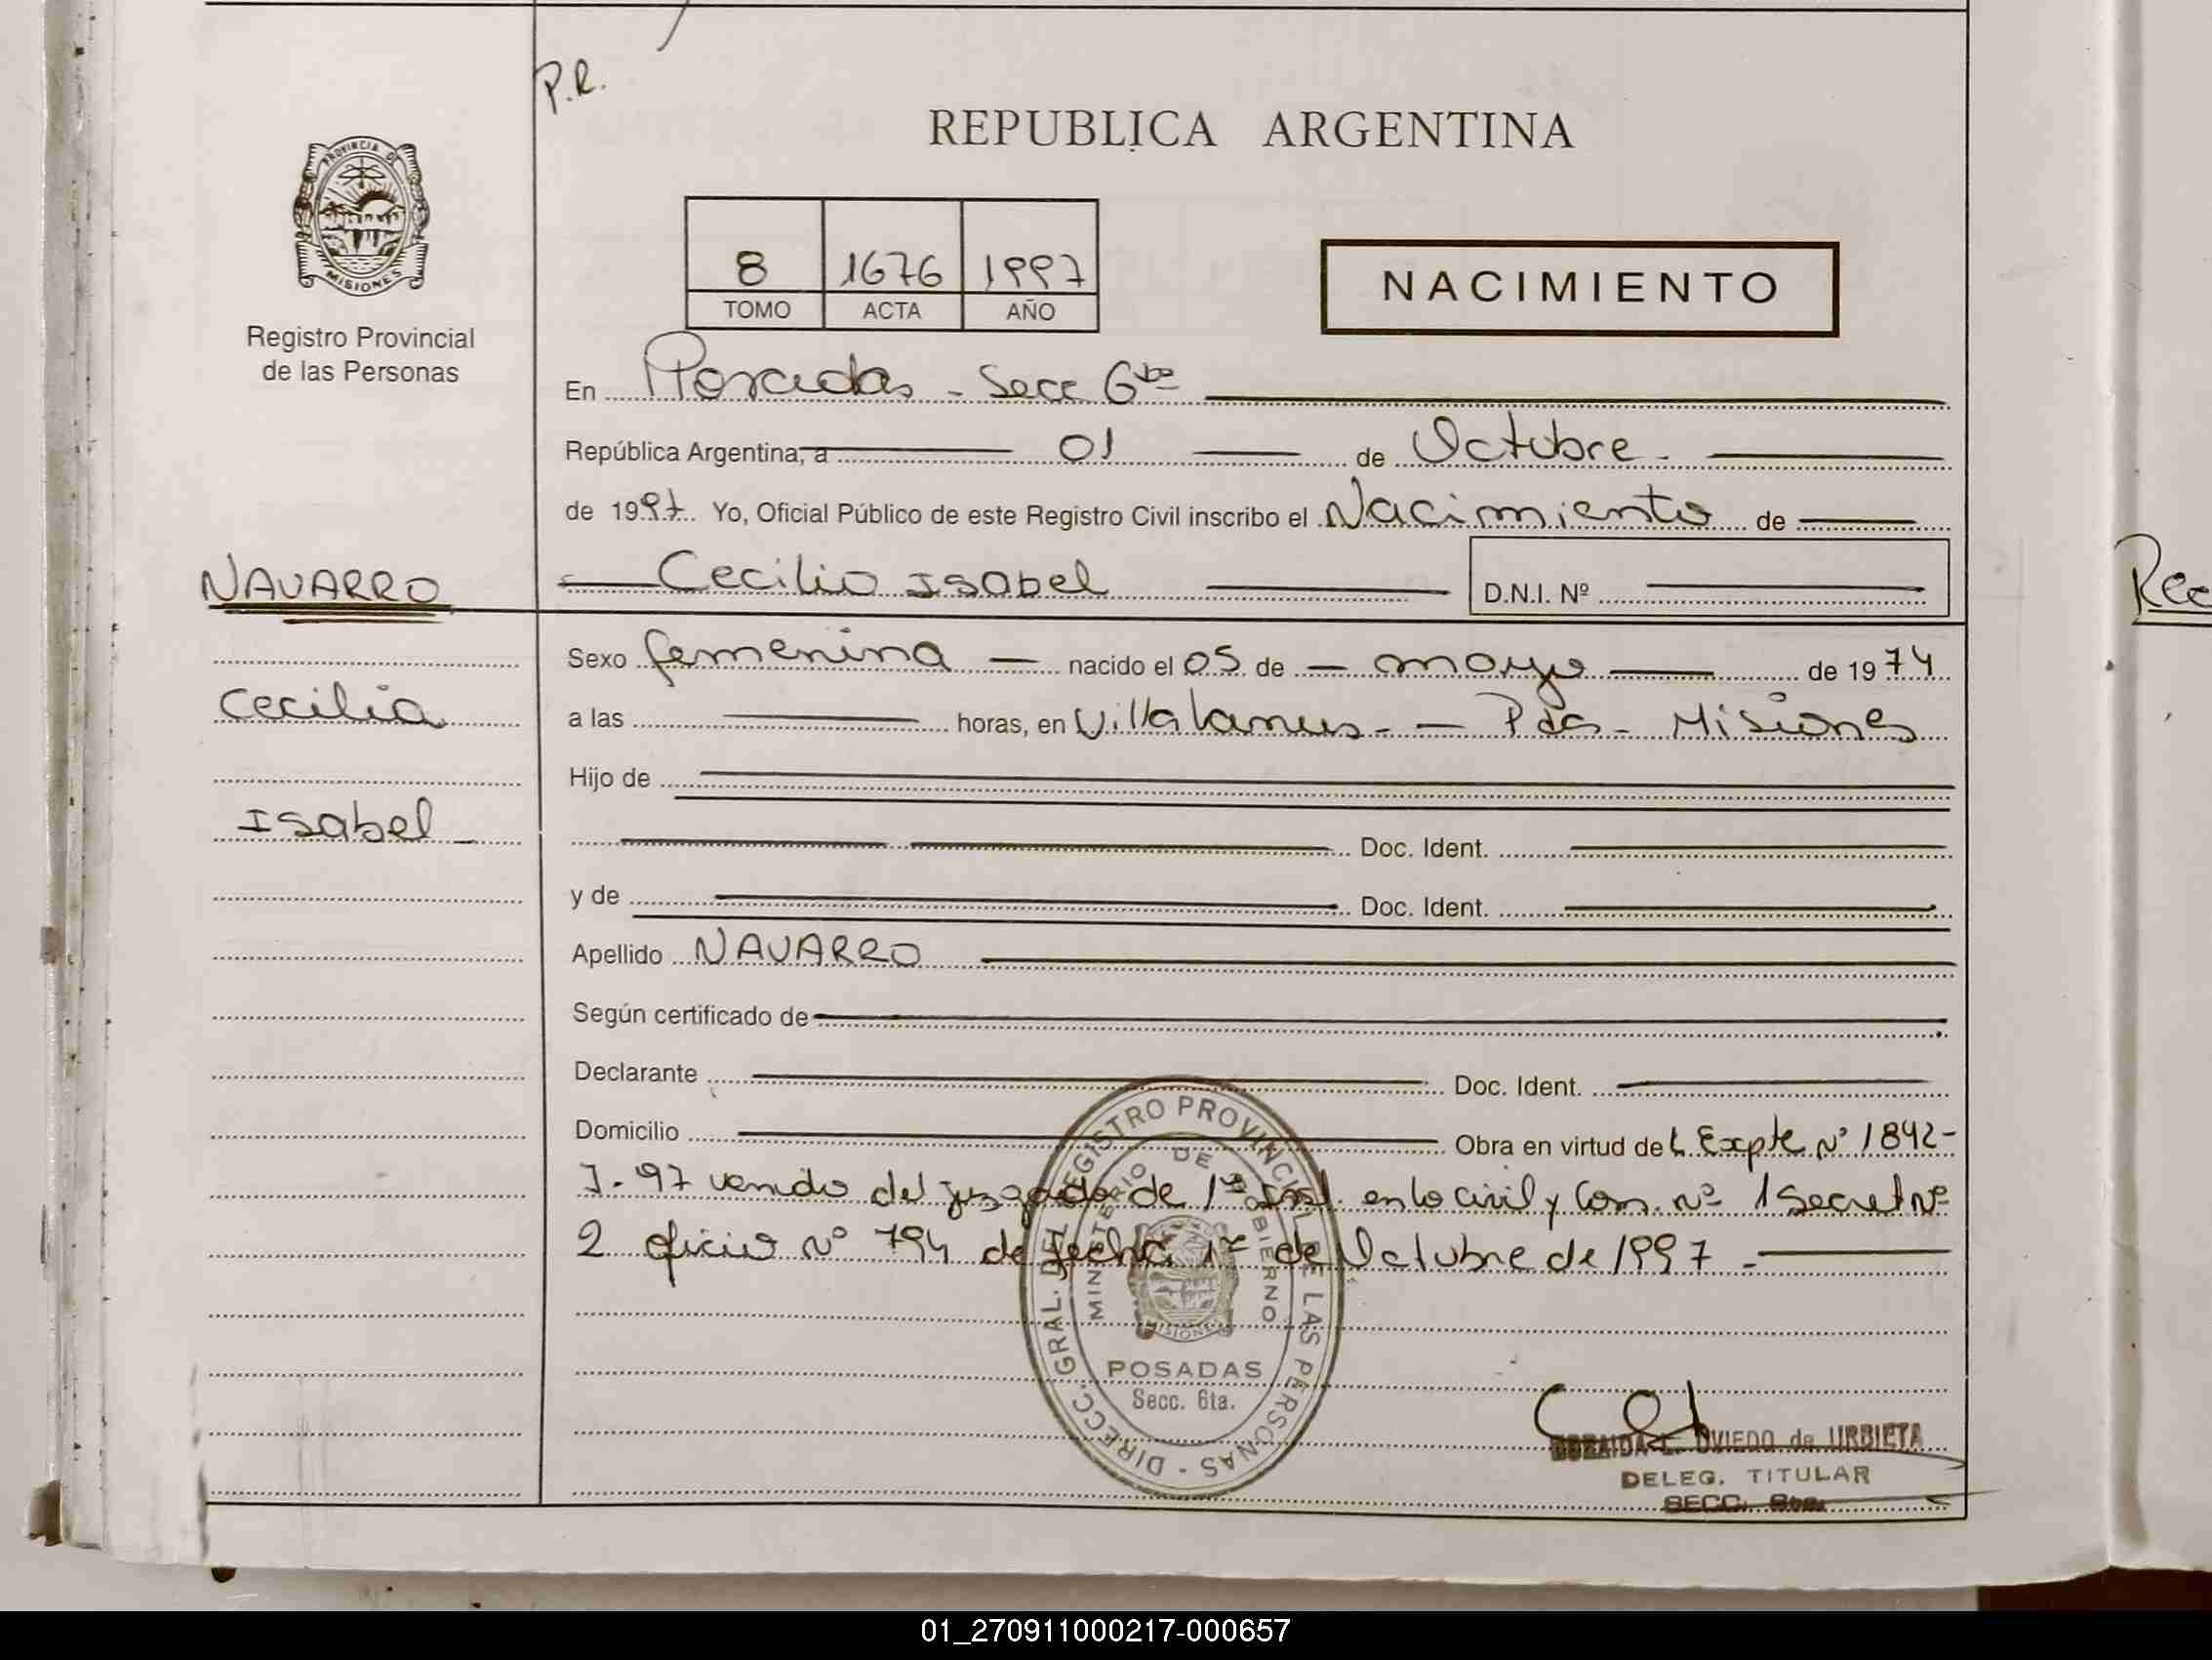 P.R.
REPUBLICA ARGENTINA
PROVINCIA DE
MISIONES
Registro Provincial
de las Personas
8 1676 1997
TOMO ACTA AÑO
NACIMIENTO
En Posadas - Secc 6ta
República Argentina, a 01 de Octubre.
de 1997 Yo, Oficial Público de este Registro Civil inscribo el Nacimiento de
Cecilia Isabel D.N.I. Nº
NAVARRO
Cecilia
Isabel
Sexo femenina nacido el 05 de mayo de 1974
a las horas, en Villa Lanus - Pdas - Misiones
Hijo de
Doc. Ident.
y de Doc. Ident.
Apellido NAVARRO
Según certificado de
Declarante Doc. Ident.
Domicilio Obra en virtud del Expte Nº 1842-
J-97 venido del juzgado de 1ra Inst. en lo civil y Com. nº 1 Secret Nº
2 oficio Nº 794 de fecha 1º de Octubre de 1997.
DIRECC. GRAL. DEL REGISTRO PROVINCIAL DE LAS PERSONAS
MINISTERIO DE GOBIERNO
MISIONES
POSADAS
Secc. 6ta.
OVIEDO de URBIETA
DELEG. TITULAR
SECC. 6ta.
01_270911000217-000657